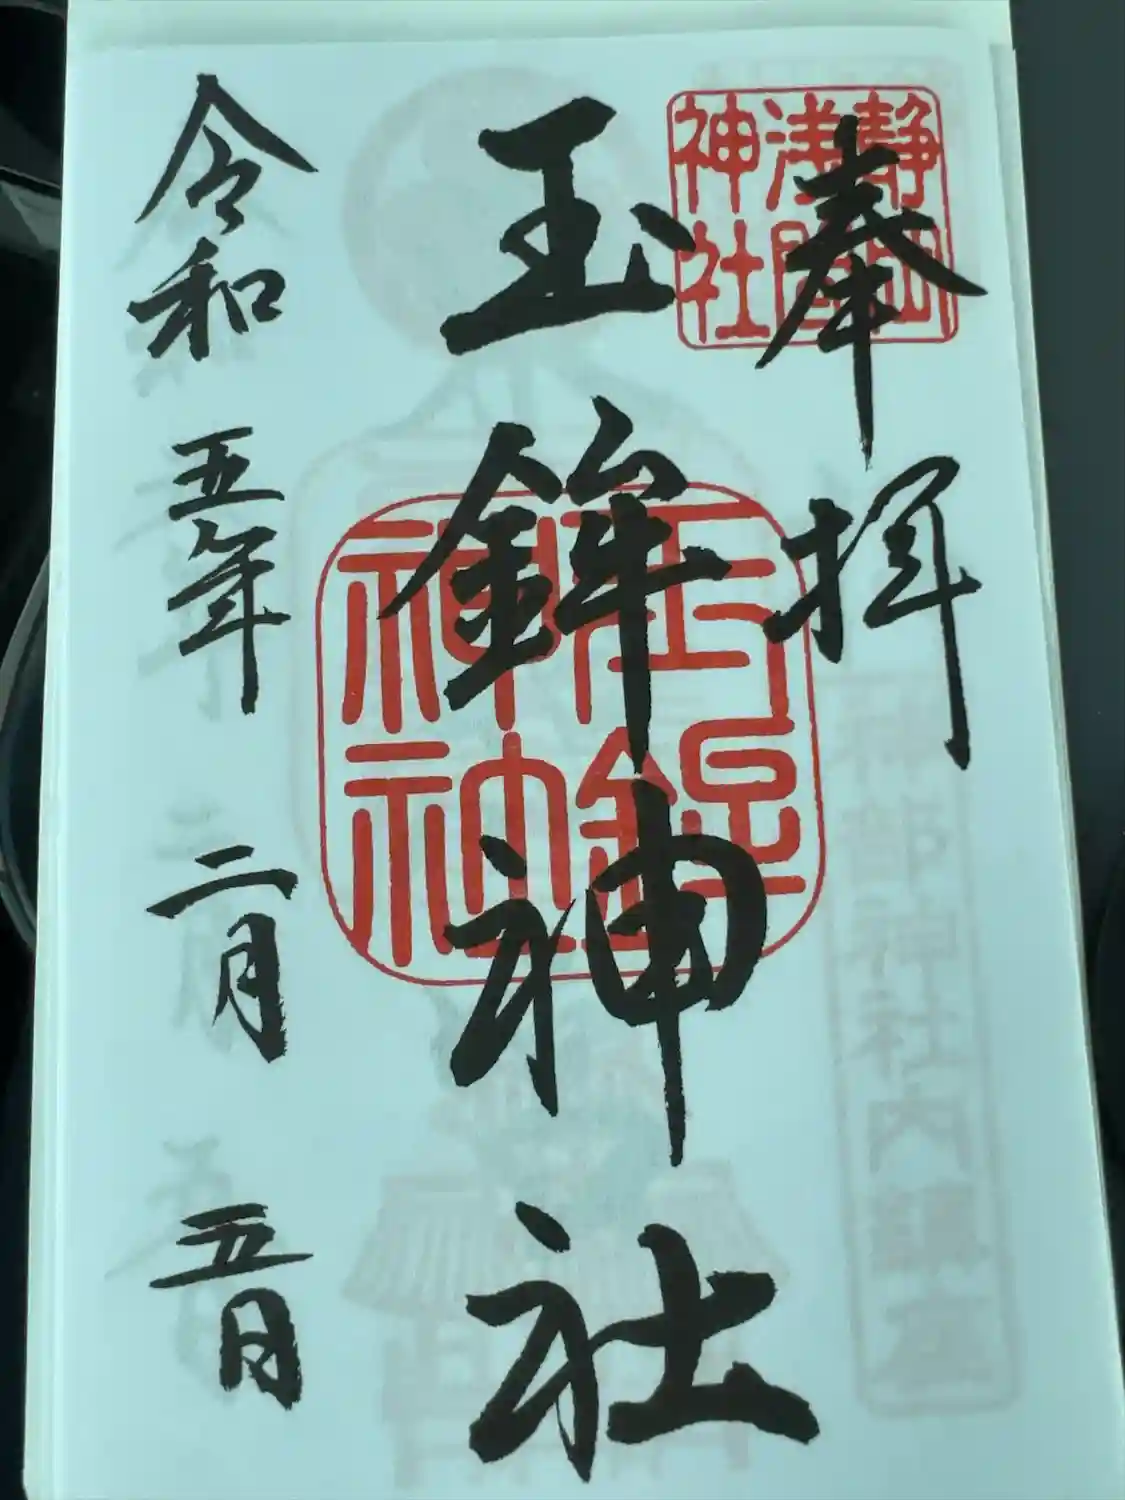 奉拝
静岡
浅間
神社
玉鉾神社
玉鉾
神社
令和五年二月五日